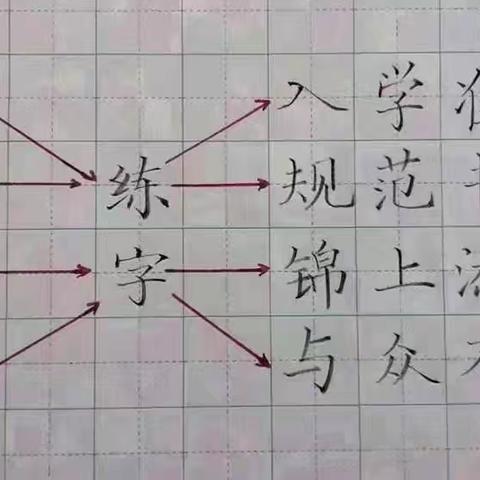 练
字
入学
规范
锦上
与众